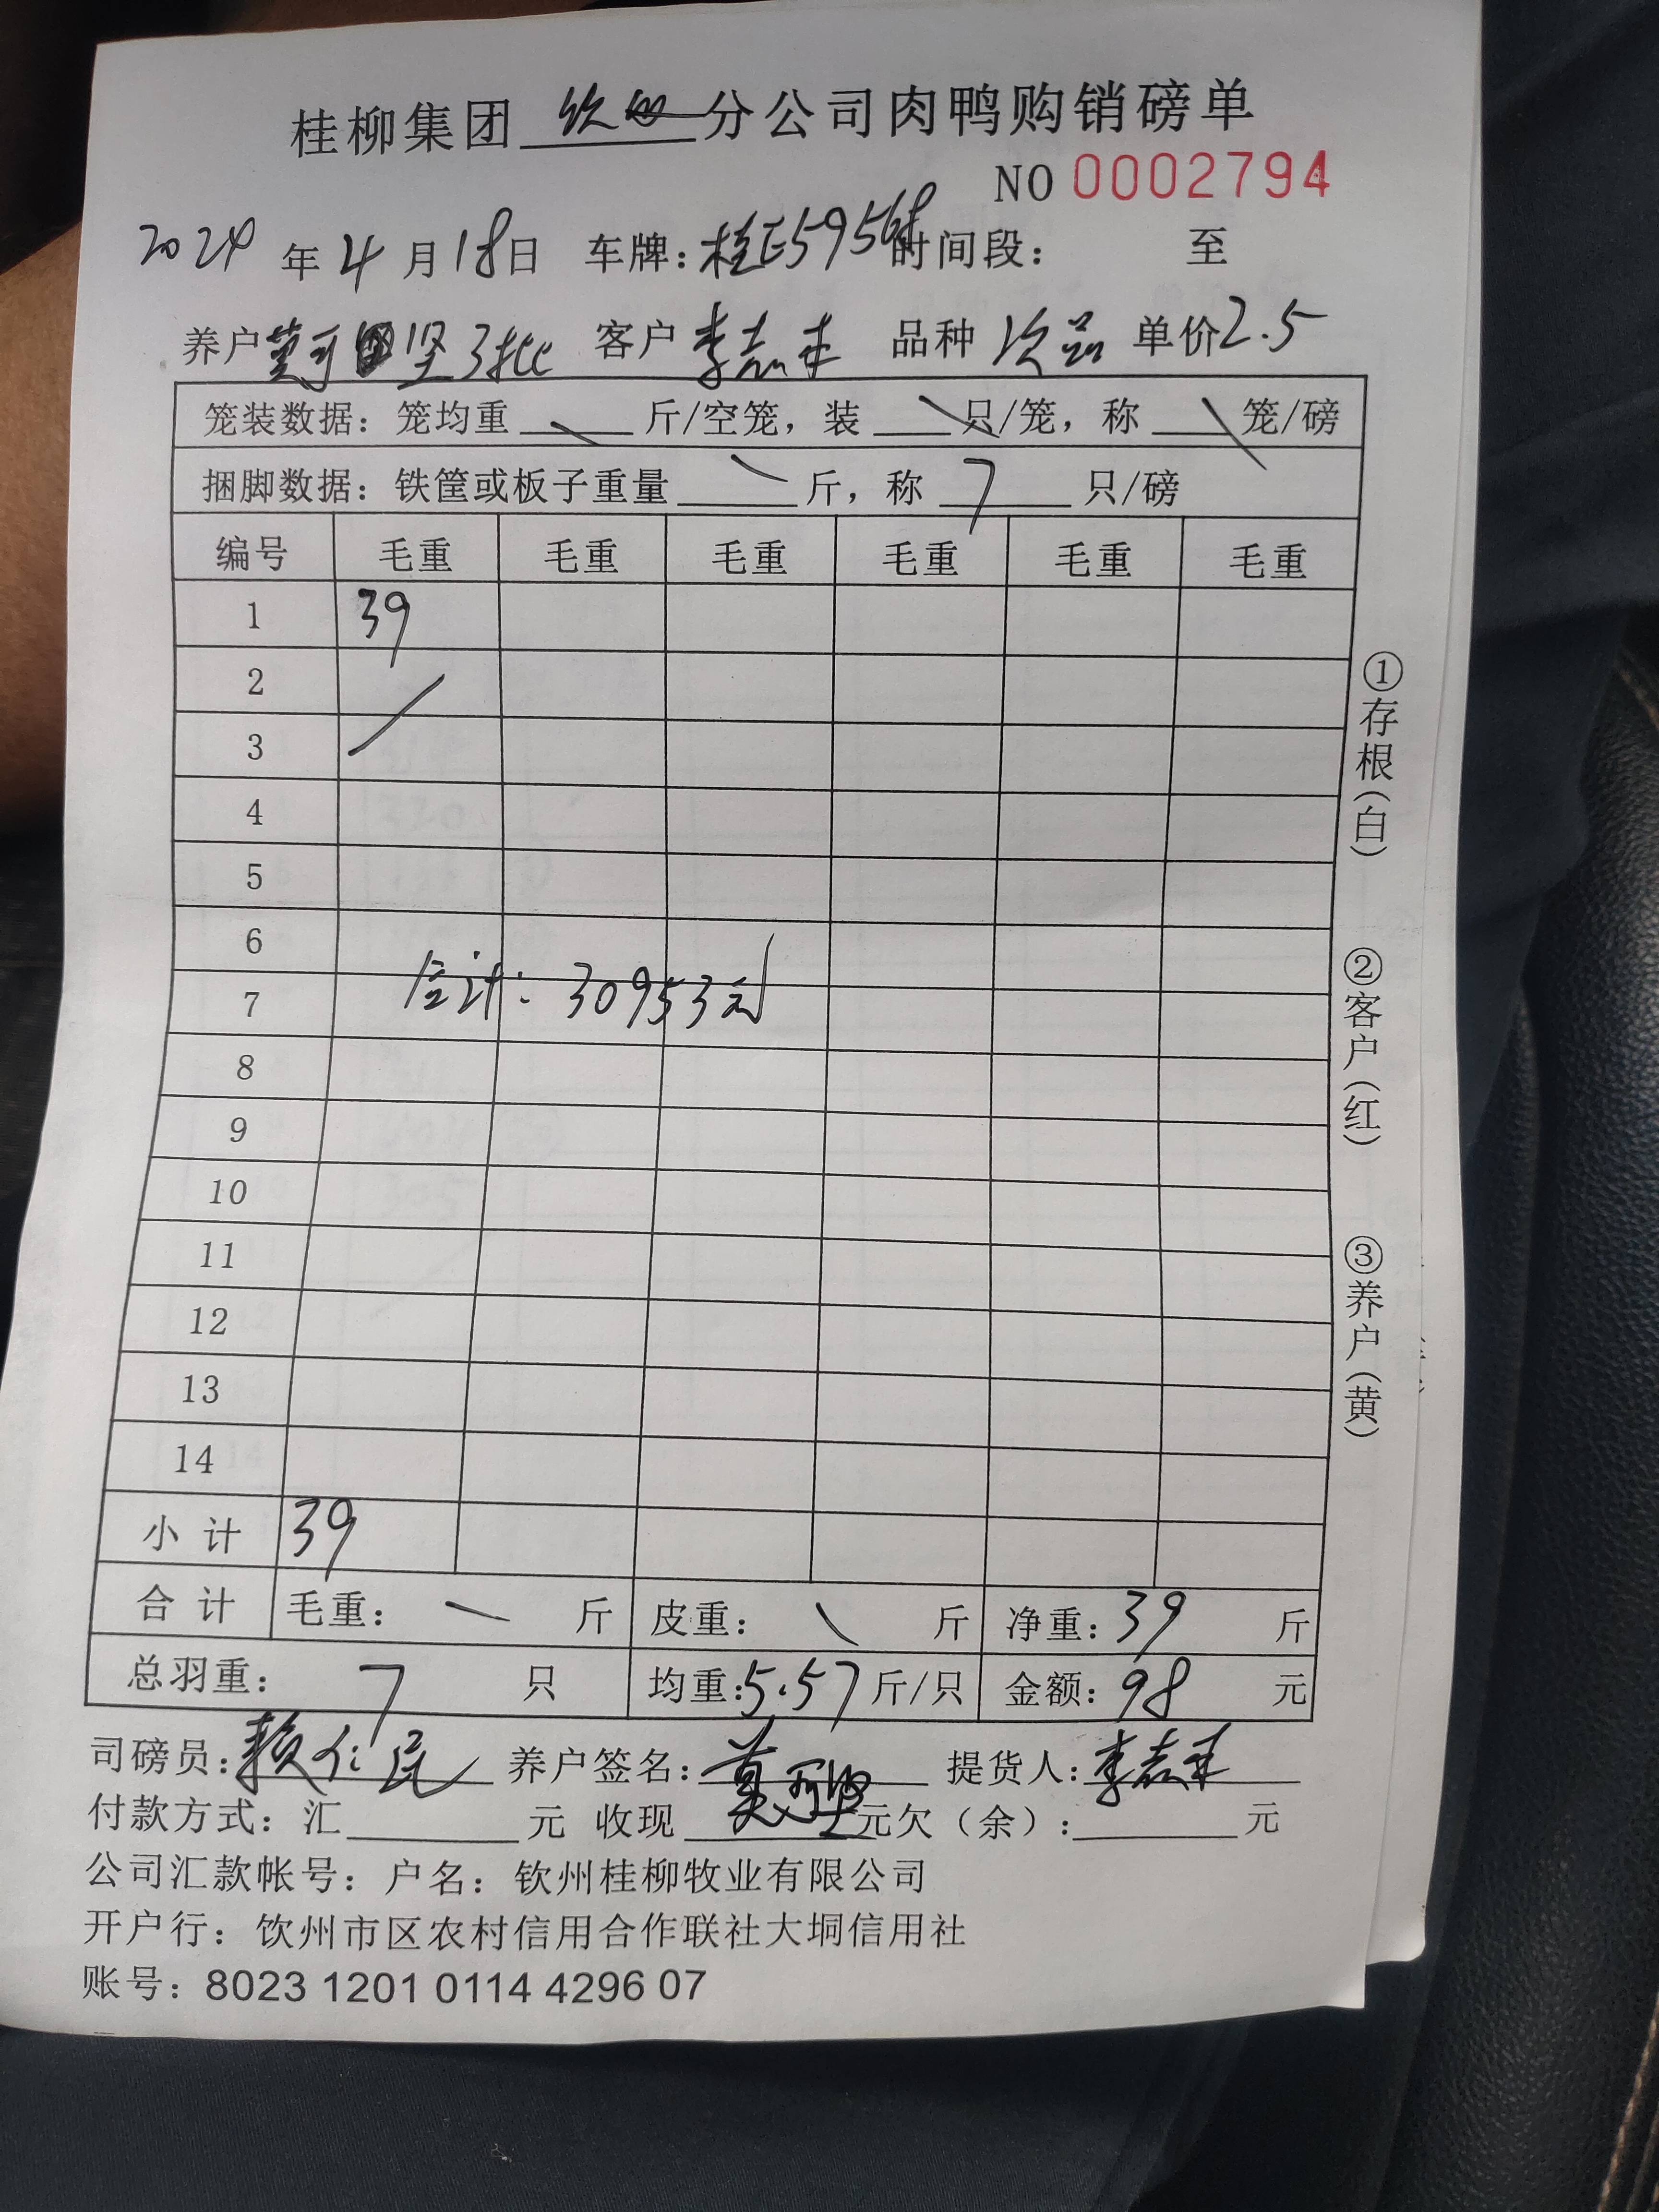 桂柳集团 钦州 分公司肉鸭购销磅单
NO 0002794
2024 年 4 月 18 日 车牌: 桂E5956 时间段: 至
养户 莫 坚 3批 客户 李志丰 品种 次品 单价 2.5
笼装数据: 笼均重 斤/空笼, 装 只/笼, 称 笼/磅
捆脚数据: 铁筐或板子重量 斤, 称 7 只/磅
编号 毛重 毛重 毛重 毛重 毛重 毛重
1 39
2
3
4
5
6
7 合计: 30953元
8
9
10
11
12
13
14
小计 39
合计 毛重: 斤 皮重: 斤 净重: 39 斤
总羽重: 7 只 均重: 5.57 斤/只 金额: 98 元
司磅员: 赖仁民 养户签名: 莫 坚 提货人: 李志丰
付款方式: 汇 元 收现 元 欠(余): 元
公司汇款帐号: 户名: 钦州桂柳牧业有限公司
开户行: 饮州市区农村信用合作联社大垌信用社
账号: 8023 1201 0114 4296 07
①存根(白) ②客户(红) ③养户(黄)